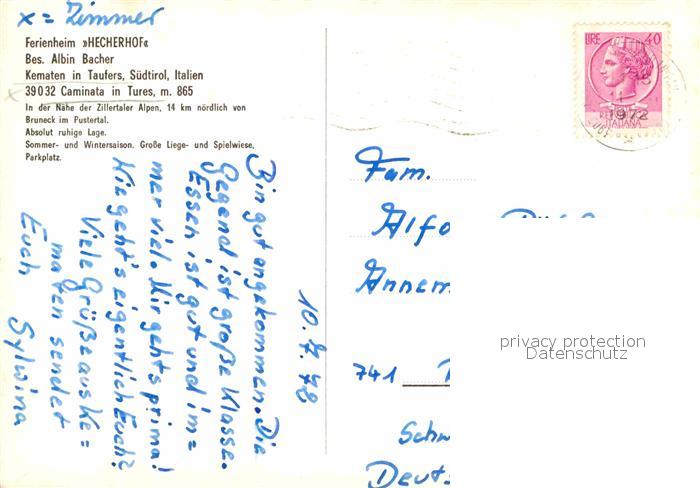 x = Zimmer
Ferienheim »HECHERHOF«
Bes. Albin Bacher
Kematen in Taufers, Südtirol, Italien
39032 Caminata in Tures, m. 865
In der Nähe der Zillertaler Alpen, 14 km nördlich von
Bruneck im Pustertal.
Absolut ruhige Lage.
Sommer- und Wintersaison. Große Liege- und Spielwiese,
Parkplatz.
10. 7. 72
Bin gut angekommen. Die
Gegend ist große Klasse.
Essen ist gut und im=
mer viel. Mir gehts prima!
Wie geht's eigentlich Euch?
Viele Grüße aus Ke=
maten sendet
Euch Sylvina
LIRE 40
1972
ITALIANA
Fam.
Alfo
Annem
741
Schw
Deuts
privacy protection
Datenschutz